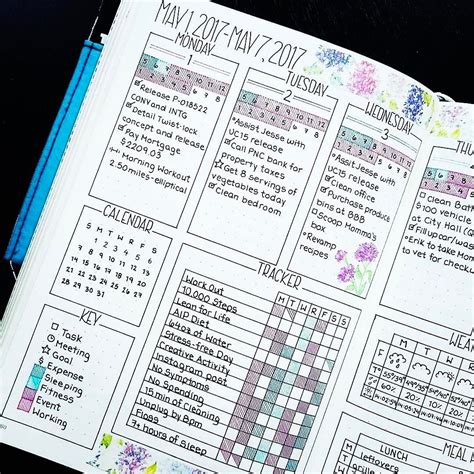 MAY 1, 2017-MAY 7, 2017
MONDAY
1
5 6 7 8 9 10 11 12
Release P-018522
CONV and INTG
Detail Twist-lock
concept and release
Pay Mortgage
$2209.03
Morning Workout
2.50 miles-elliptical
TUESDAY
2
5 6 7 8 9 10 11 12
Assist Jesse with
UC15 release
Call PNC bank for
property taxes
Get 8 servings of
vegetables today
Clean bedroom
WEDNESDAY
3
5 6 7 8 9 10 11 12
Assist Jesse with
UC15 release
Clean office
Purchase produce
bins at BBB
Scoop Momma's
box
Revamp
recipes
THU
5 6 7 8 9
clean Bath
$100 vehicle
at City Hall
Fill up car/wash
Erik to take Mam
to vet for checkup
CALENDAR
S M T W T F S
1 2 3 4 5 6
7 8 9 10 11 12 13
14 15 16 17 18 19 20
21 22 23 24 25 26 27
28 29 30 31
KEY
Task
Meeting
Goal
$ Expense
Sleeping
Fitness
Event
Working
TRACKER
M T W T F S S
Work out
10,000 Steps
Lean for Life
AIP Diet
64oz of Water
Stress-free Day
Creative Activity
Instagram post
No Symptoms
No Spending
15 min of Cleaning
Unplug by 8pm
Floss
7+ hours of Sleep
WEA
M T W
MEAL
M leftovers